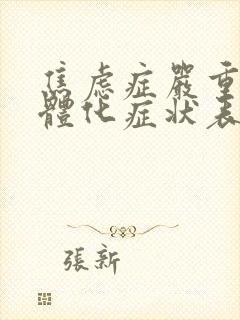 焦虑症嚴重
體化症狀表
張新